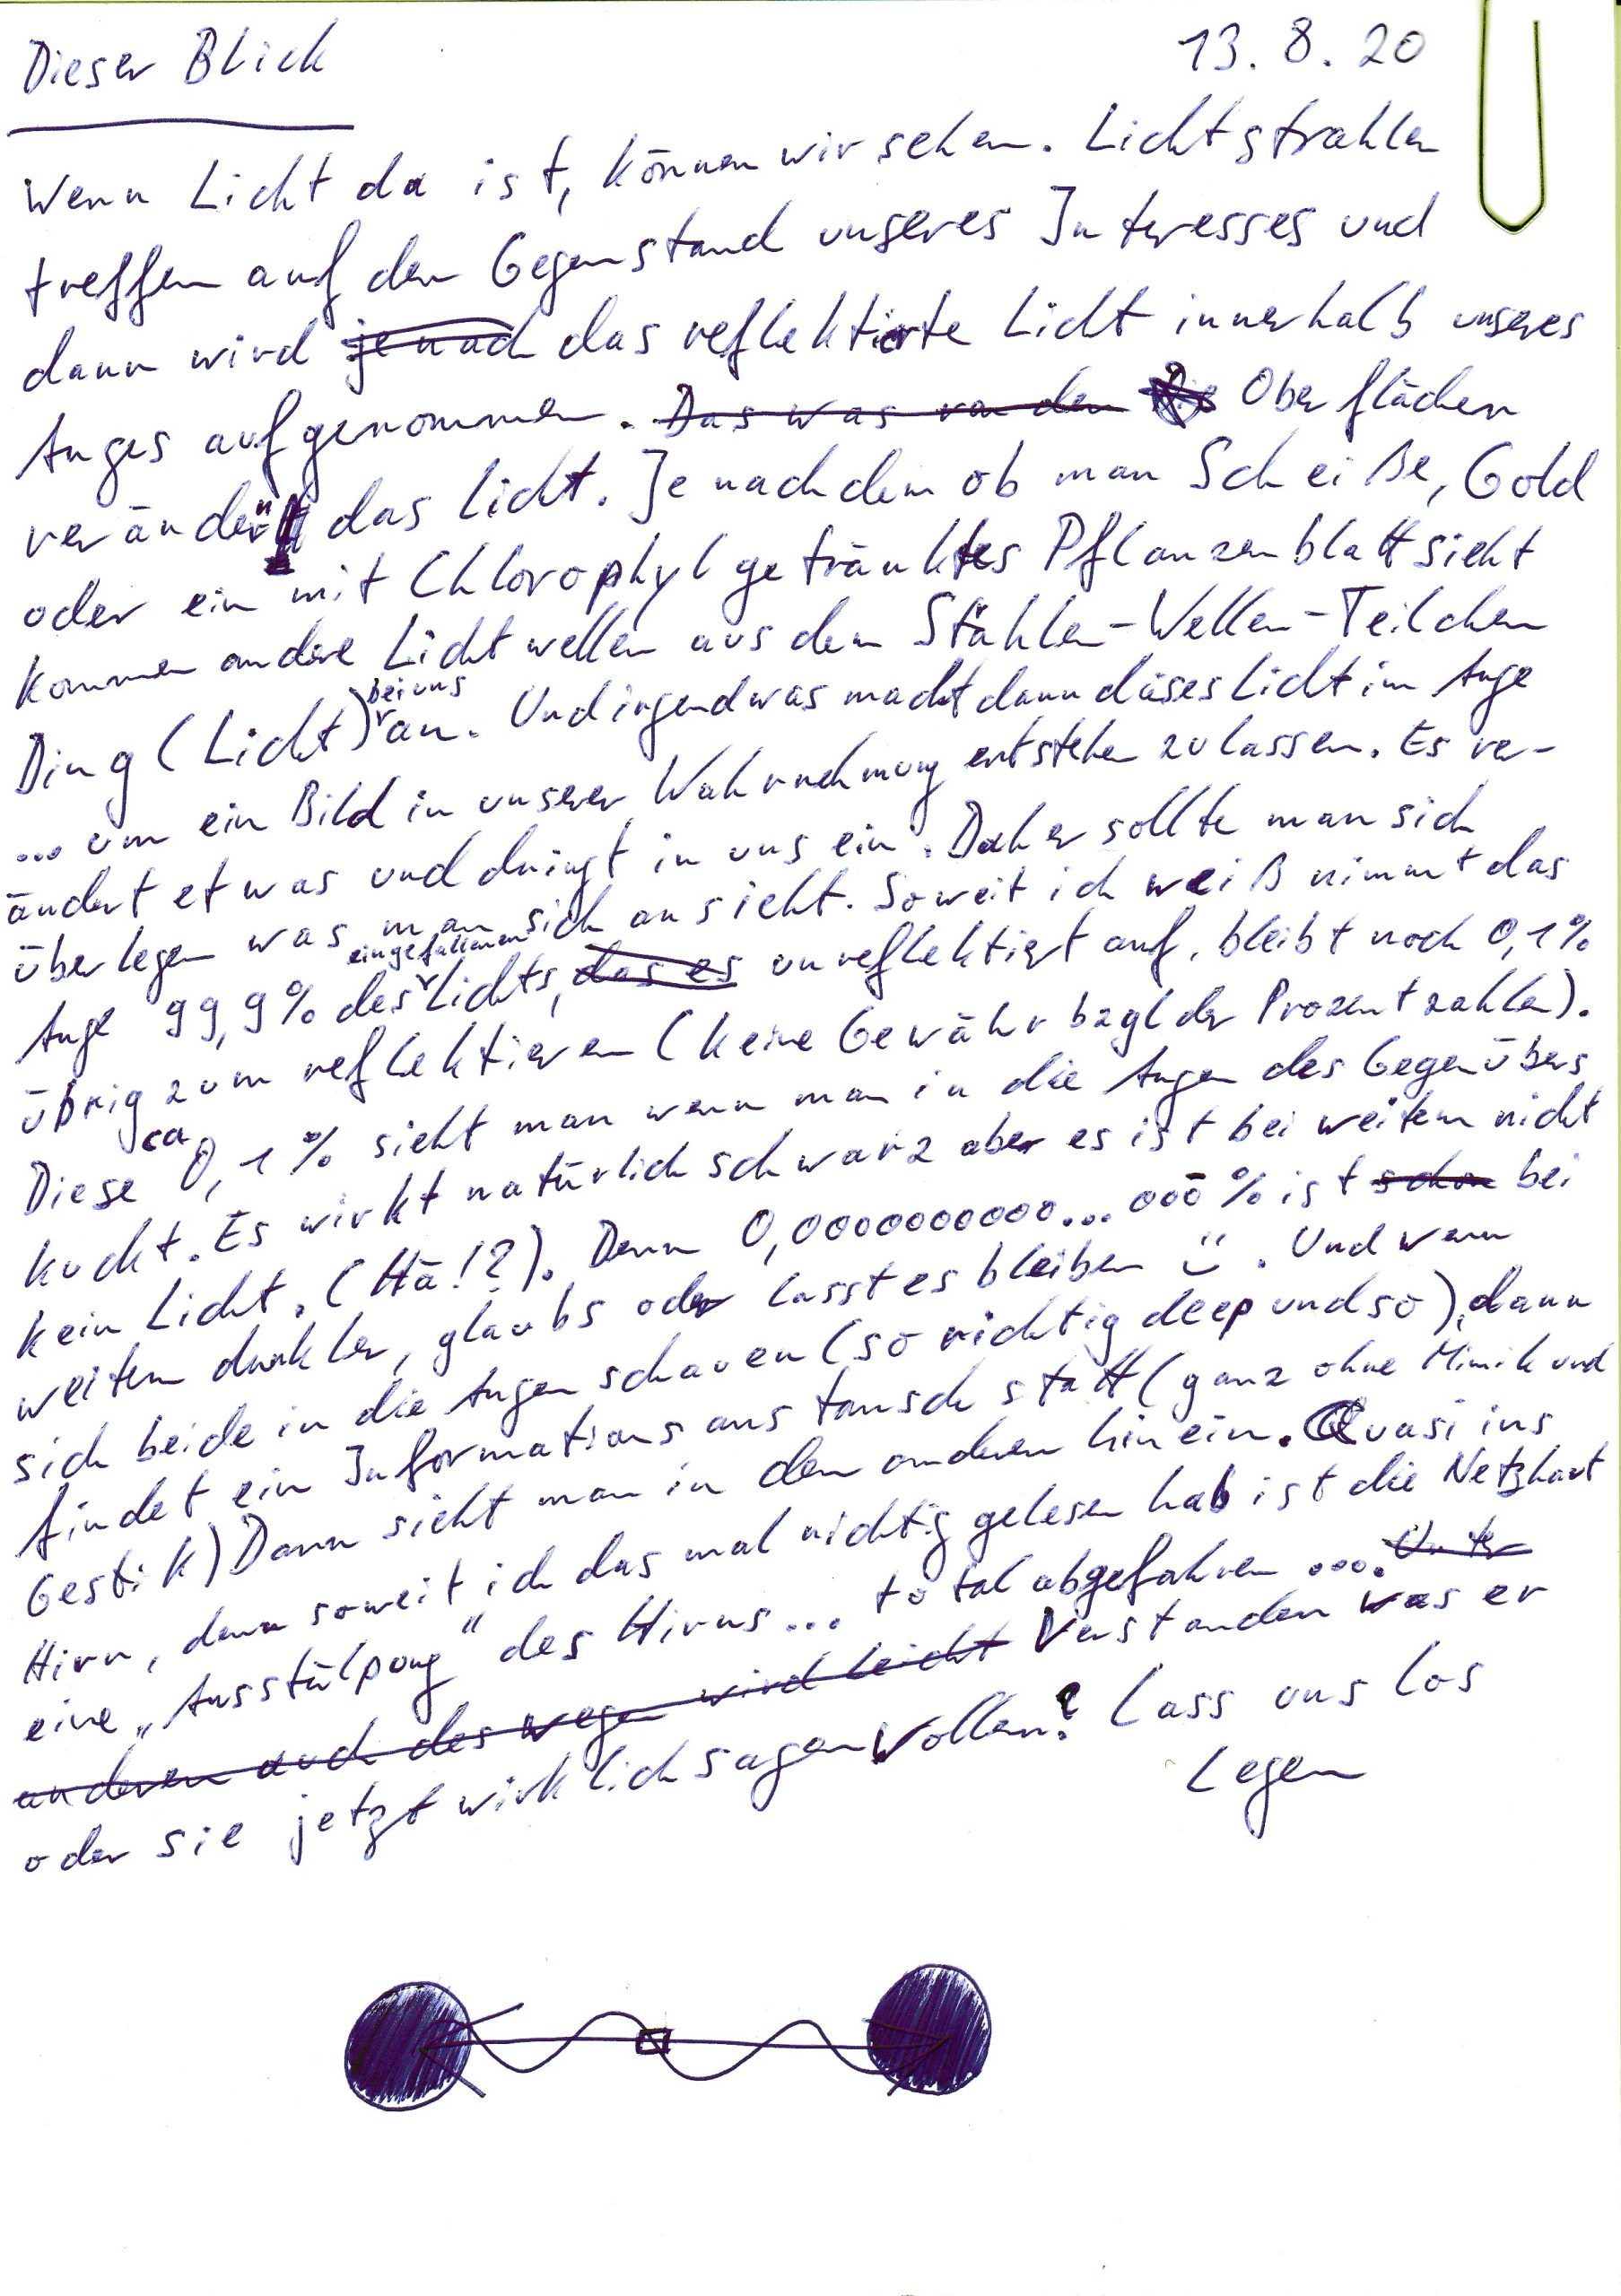 Dieser Blick
13. 8. 20
Wenn Licht da ist, können wir sehen. Lichtstrahlen
treffen auf den Gegenstand unseres Interesses und
dann wird je nach das reflektierte Licht innerhalb unseres
Auges aufgenommen. Das was von den Die Oberflächen
verändern das Licht. Je nachdem ob man Scheiße, Gold
oder ein mit Chlorophyl getränktes Pflanzenblatt sieht
kommen andere Lichtwellen aus dem Stahlen-Wellen-Teilchen
Ding (Licht) bei uns an. Und irgendwas macht dann dieses Licht im Auge
... um ein Bild in unserer Wahrnehmung entstehen zu lassen. Es ver-
ändert etwas und dringt in uns ein. Daher sollte man sich
überlegen was man sich ansieht. Soweit ich weiß nimmt das
Auge 99,9% des eingefallenen Lichts, das es unreflektiert auf, bleibt noch 0,1%
übrig zum reflektieren (keine Gewähr bzgl der Prozentzahlen).
Diese ca 0,1% sieht man wenn man in die Augen des Gegenübers
kuckt. Es wirkt natürlich schwarz aber es ist bei weitem nicht
kein Licht. (Hä!?). Denn 0,0000000000...000% ist schon bei
weitem dunkler, glaubs oder lasst es bleiben ¨⌣. Und wenn
sich beide in die Augen schauen (so richtig deep und so), dann
findet ein Informationsaustausch statt (ganz ohne Mimik und
Gestik) Dann sieht man in den anderen hinein. Quasi ins
Hirn, denn soweit ich das mal richtig gelesen hab ist die Netzhaut
eine „Ausstülpung" des Hirns... total abgefahren .... Unter
anderem auch deswegen wird leicht Verstanden was er
oder sie jetzt wirklich sagen wollen? Lass uns los
Legen